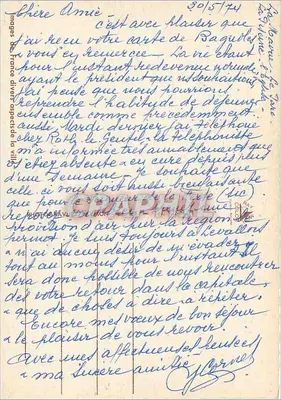 30/5/74
Chère Amie
c'est avec plaisir que
j'ai reçu votre carte de Bagnoles
& vous en remercie. La vie étant
pour l'instant redevenue normale
ayant le président que ns souhaitions
j'ai pensé que nous pourrions
reprendre l'habitude de déjeuner
ensemble comme précédemment
aussi, Mardi dernier j'ai téléphoné
chez Rasty, le gentil téléphoniste
m'a répondu très aimablement que
étiez absente & en cure depuis plus
d'une semaine. Je souhaite que
celle-ci vous soit aussi bienfaisante
que pour
CPAPHIL
provision d'air pur la région
permet. Je suis toujours à Levallois
& n'ai aucun désir de m'évader
tout au moins pour l'instant. Il
sera donc possible de nous rencontrer
dès votre retour dans la capitale
& que de choses à dire & à répéter.
Encore mes vœux de bon séjour
& le plaisir de vous revoir
avec mes affectueuses pensées
& ma sincère amitié
Images de france divers aspects de la ville